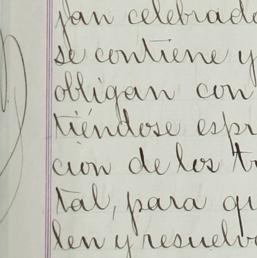 jan celebrado
se contiene y
obligan con
tiéndose espr
cion de los tr
tal, para qu
len y resuelva